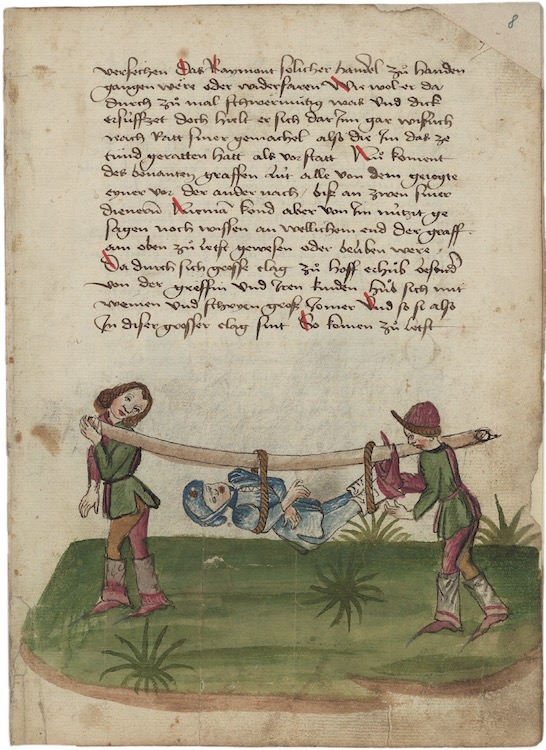 8
versechen Das Raymont solicher handel zuͦ handen
gangen were oder widerfaren Wie wol er da
durch zuͦ mal schwermuͤtig was vnd dick
ersúffzet doch hielt er sich dar Jnn gar wislich
nach Ratt siner gemachel also die Jm das ze
stund geratten hatt als vor statt Nu koment
des benanten graffen lút alle von dem geiegte
eyner vor der ander nach / biß an zwen siner
dienern Nieman kond aber von Jm nützit ge
sagen noch wissen an wellichem end der graff
am oben zuͦ letst gewesen oder beliben were
Da durch sich grosse clag zuͦ hoff erhuͦb besund
von der greffin vnd Jren kinden huͦb sich mit
weinen vnd schreyen groß Jomer Vnd so si also
Jn diser grosser clag sint So komen zuͦ letst